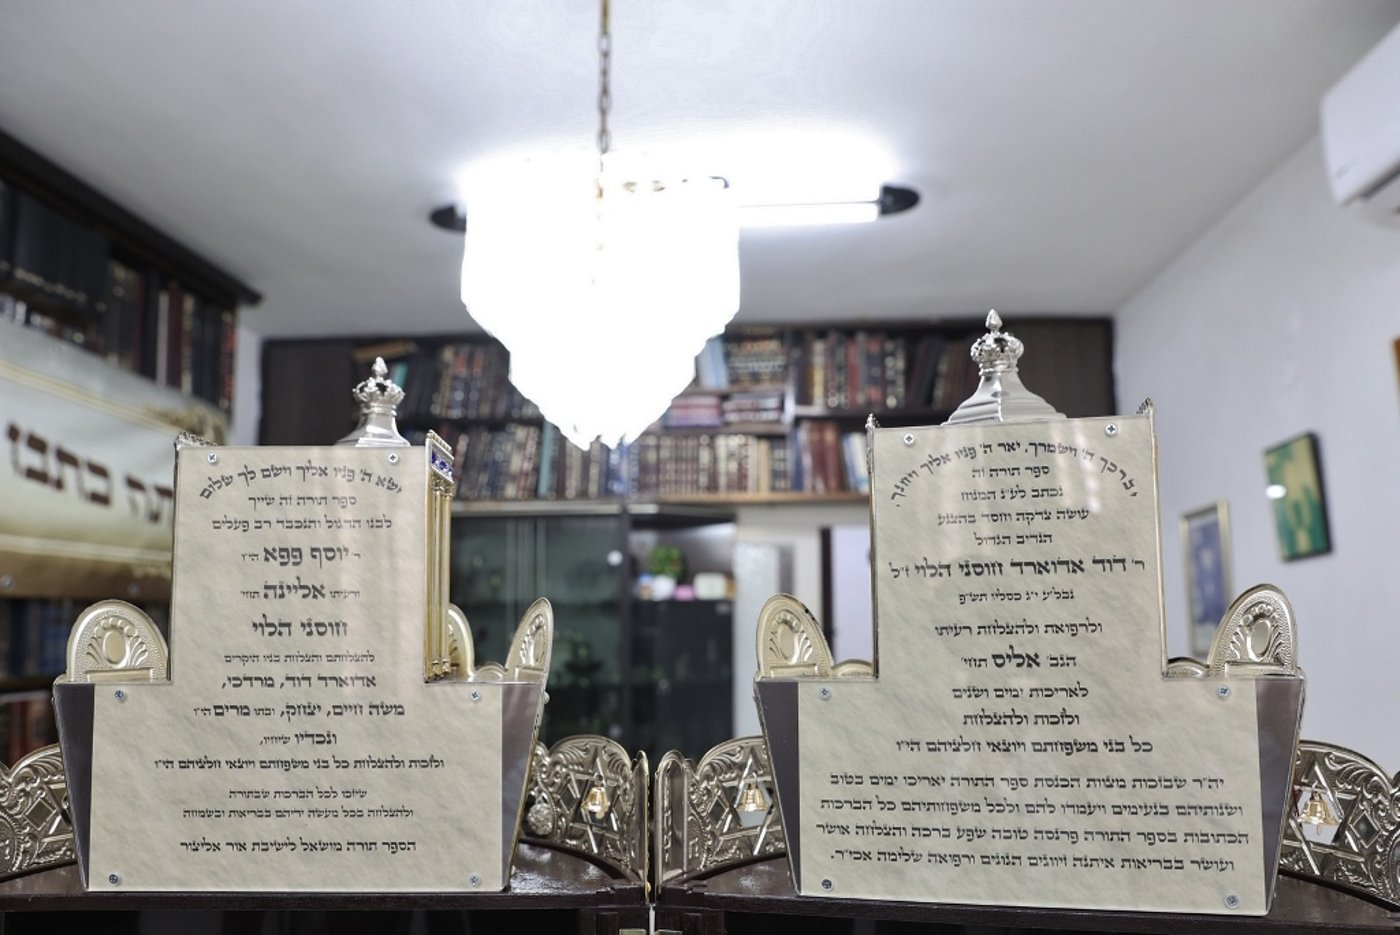 תה כתבו
ישא ה' פניו אליך וישם לך שלום
ספר תורה זה שייך
לבנו הדגול והנכבד רב פעלים
ר' יוסף פפא הי"ו
ורעיתו אליינה תחי'
חוסני הלוי
להצלחתם והצלחת בניו היקרים
אדוארד דוד, מרדכי,
משה חיים, יצחק, ובתו מרים הי"ו
ונכדיו שיחיו,
ולזכות ולהצלחת כל בני משפחתם ויוצאי חלציהם הי"ו
שיזכו לכל הברכות שבתורה
ולהצלחה בכל מעשה ידיהם בבריאות ובשמחה
הספר תורה מושאל לישיבת אור אליצור
יברכך ה' וישמרך, יאר ה' פניו אליך ויחנך,
ספר תורה זה
נכתב לע"נ המנוח
עושה צדקה וחסד בהצנע
הנדיב הגדול
ר' דוד אדוארד חוסני הלוי ז"ל
נבל"ע י"ג כסליו תש"פ
ולרפואת ולהצלחת רעיתו
הגב' אליס תחי'
לאריכות ימים ושנים
ולזכות ולהצלחת
כל בני משפחתם ויוצאי חלציהם הי"ו
יה"ר שבזכות מצוות הכנסת ספר התורה יאריכו ימים בטוב
ושנותיהם בנעימים ויעמדו להם ולכל משפחותיהם כל הברכות
הכתובות בספר התורה פרנסה טובה שפע ברכה והצלחה אושר
ועושר בבריאות איתנה זיווגים הגונים ורפואה שלימה אכי"ר.